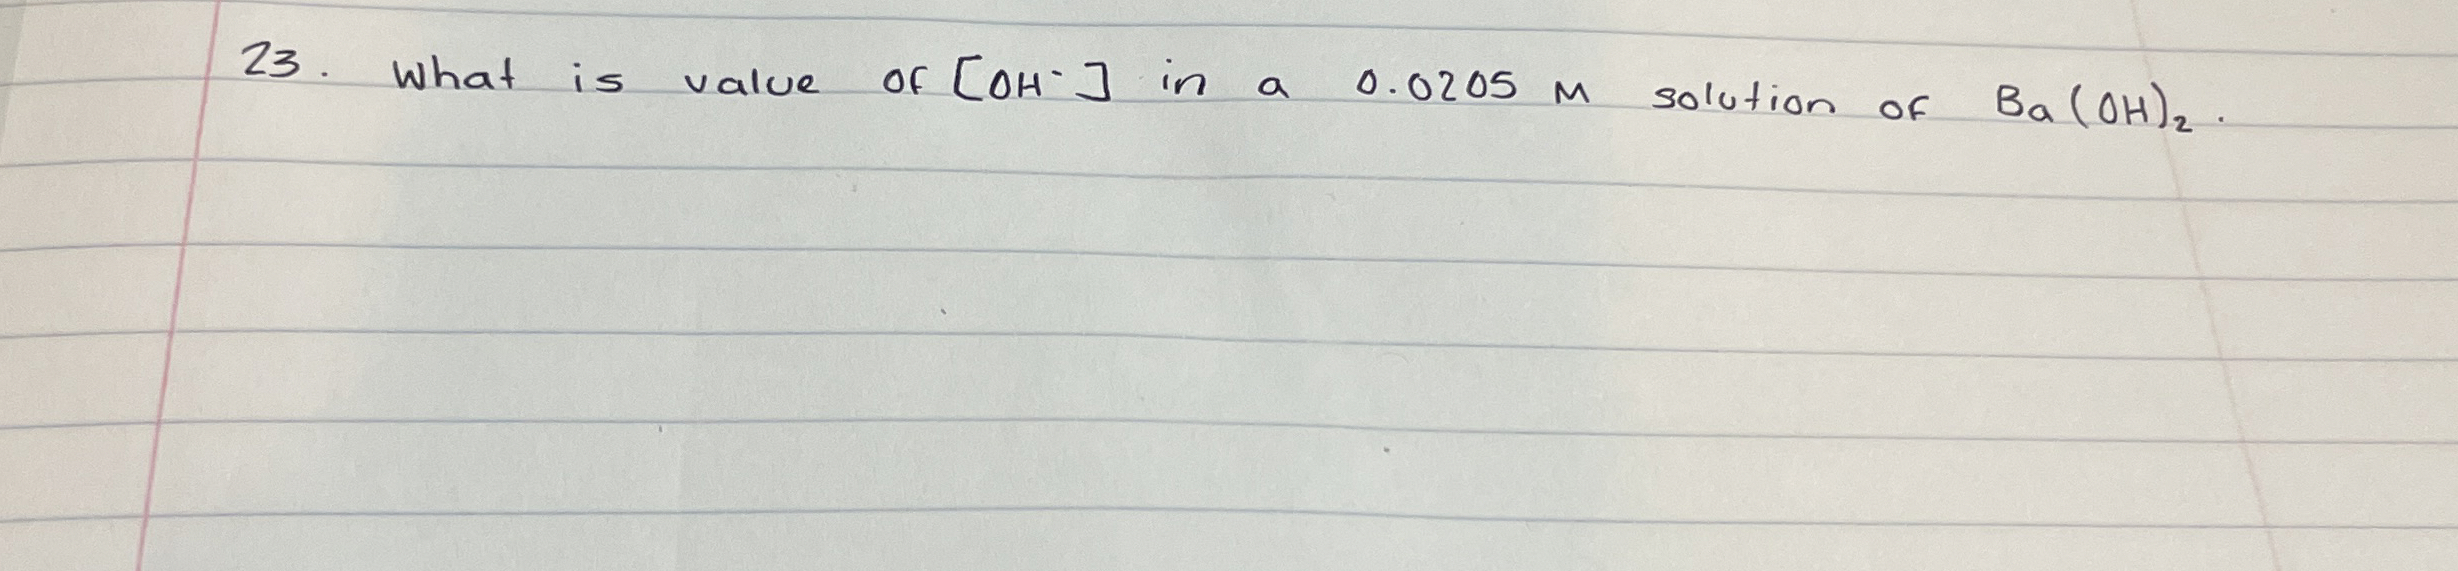 23. What is value of [OH⁻] in a 0.0205 M solution of Ba(OH)₂.